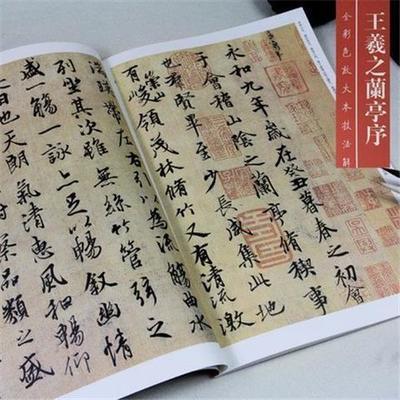 王羲之蘭亭序
全彩色放大本技法解
永和九年歲在癸丑暮春之初會
于會稽山陰之蘭亭脩稧事
也群賢畢至少長咸集此地
有崇山峻領茂林脩竹又有清流激
帶左右引以為流觴曲水
列坐其次雖無絲竹管弦之
盛一觴一詠亦足以暢敘幽情
日也天朗氣清惠風和暢仰
察品類之盛